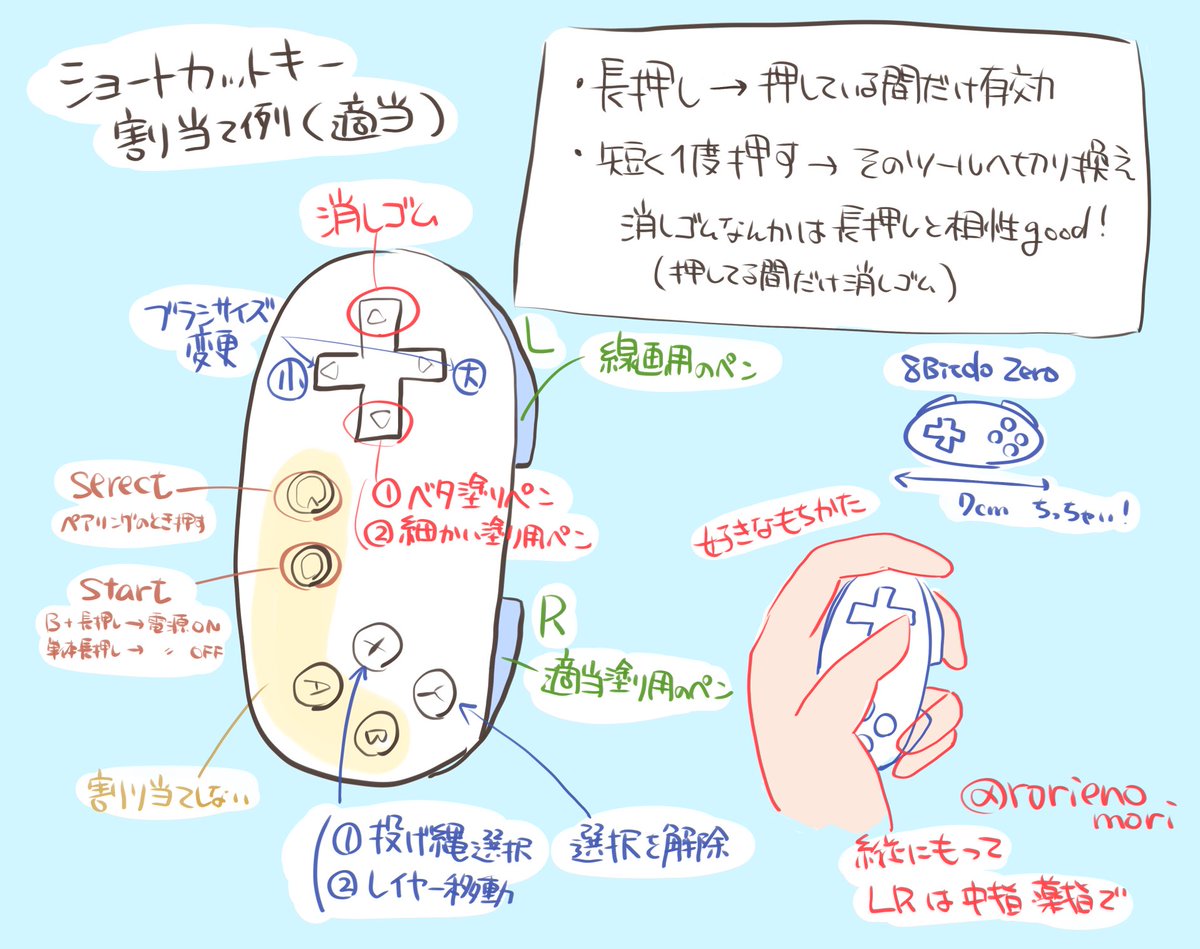 ショートカットキー
割り当て例(適当)
・長押し→押している間だけ有効
・短く1度押す→そのツールへ切り換え
消しゴムなんかは長押しと相性good!
(押してる間だけ消しゴム)
消しゴム
ブラシサイズ
変更
小
大
L
線画用のペン
8Bitdo Zero
7cm ちっちゃい!
Serect
ペアリングのとき押す
①ベタ塗りペン
②細かい塗り用ペン
Start
B+長押し→電源ON
単体長押し→ 〃 OFF
R
適当塗り用のペン
X
A
Y
B
割り当てしない
①投げ縄選択
②レイヤー移動
選択を解除
好きなもちかた
縦にもって
LRは中指薬指で
@rorieno
mori